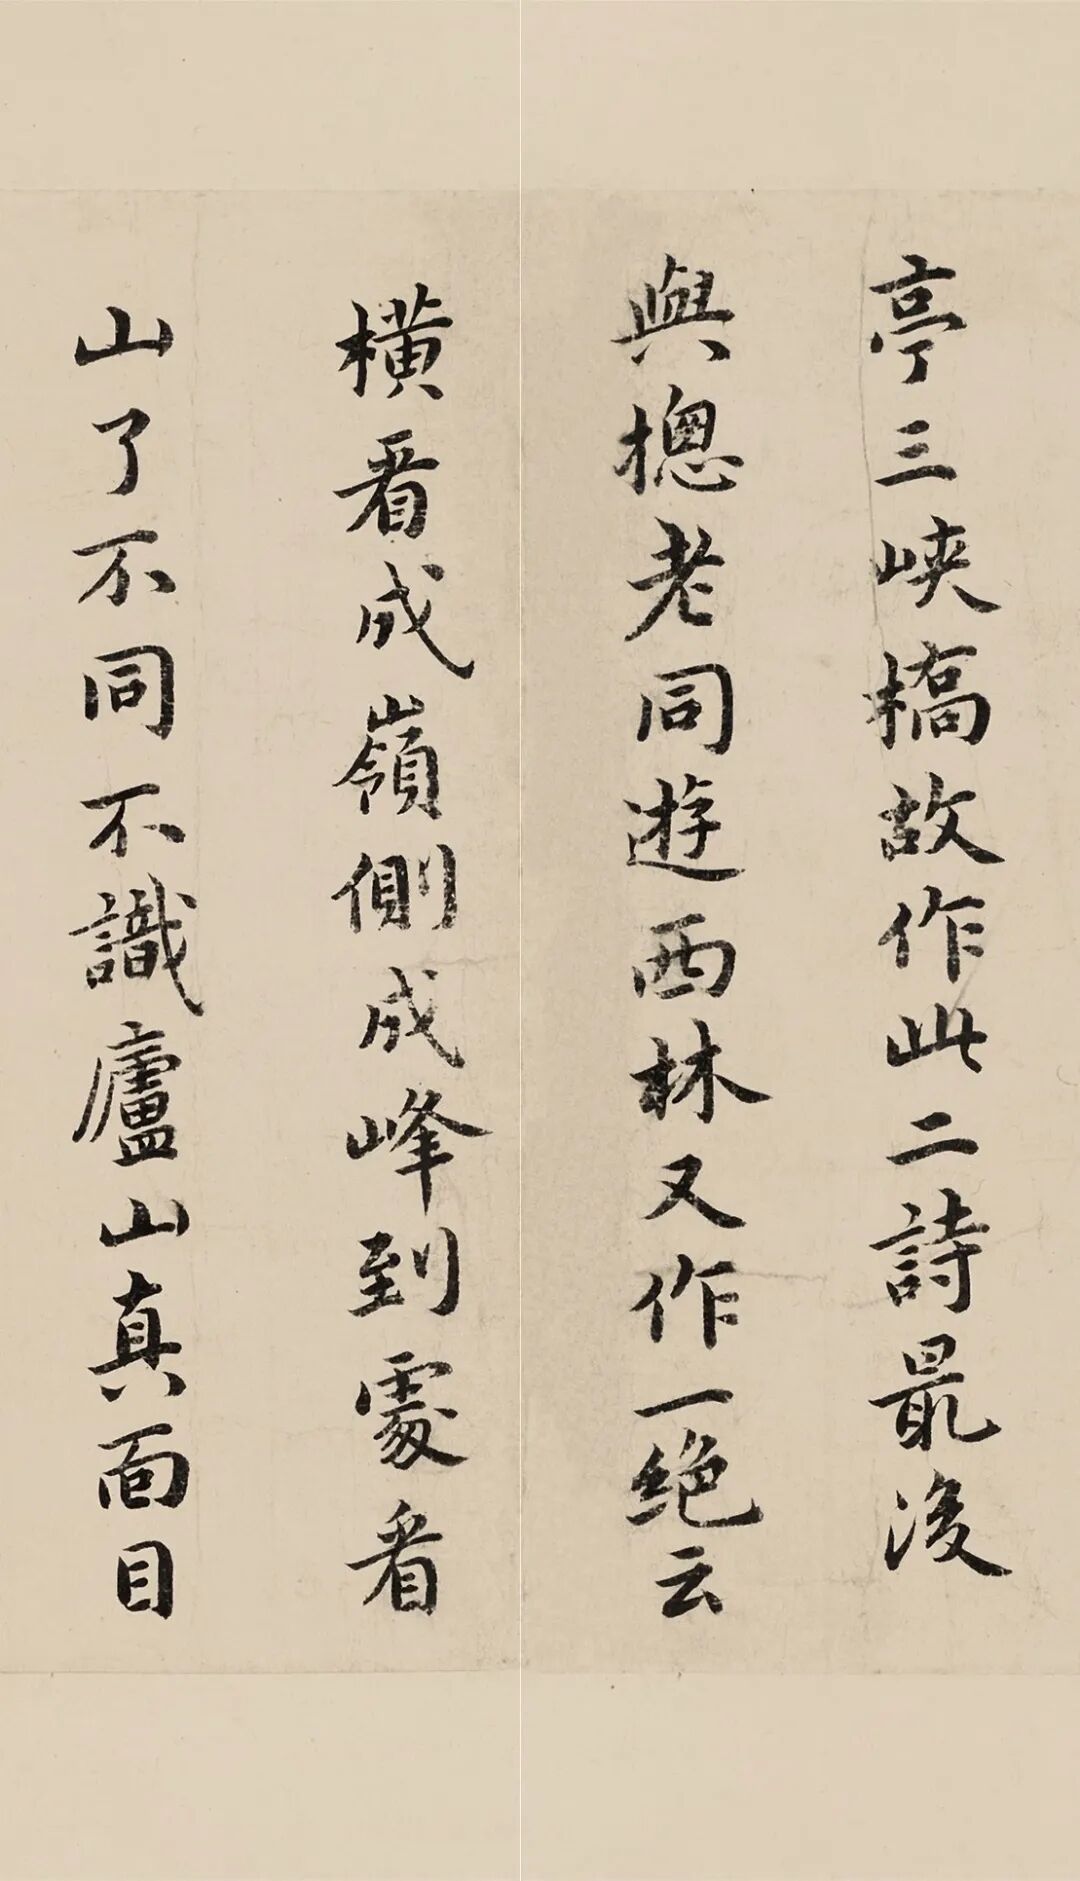 亭三峽橋故作此二詩最後
與摠老同遊西林又作一絶云
橫看成嶺側成峰到處看
山了不同不識廬山真面目